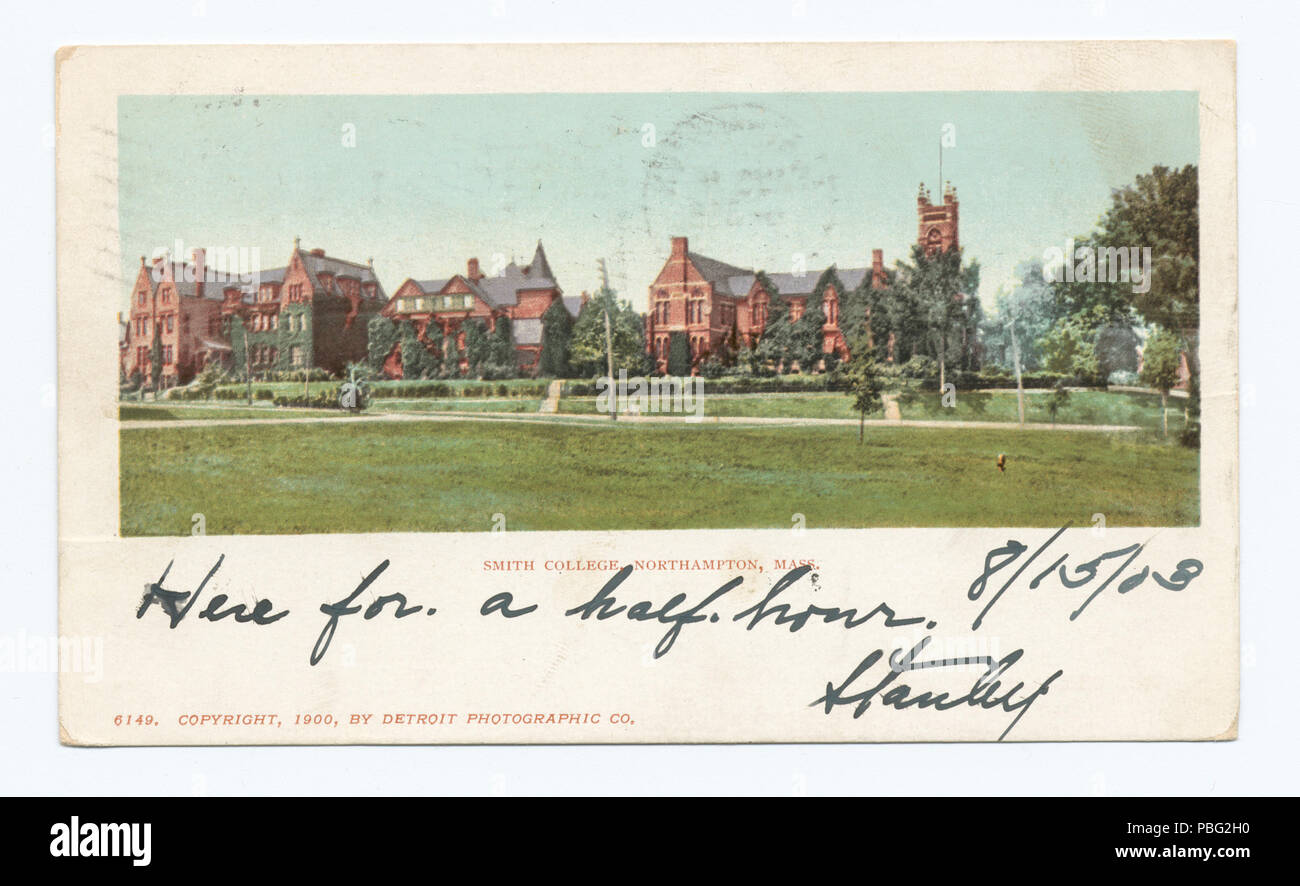 SMITH COLLEGE, NORTHAMPTON, MASS.
Here for. a half. hour. 8/15/03
Stanley
6149. COPYRIGHT, 1900, BY DETROIT PHOTOGRAPHIC CO.
alamy
Image ID: PBG2H0
www.alamy.com